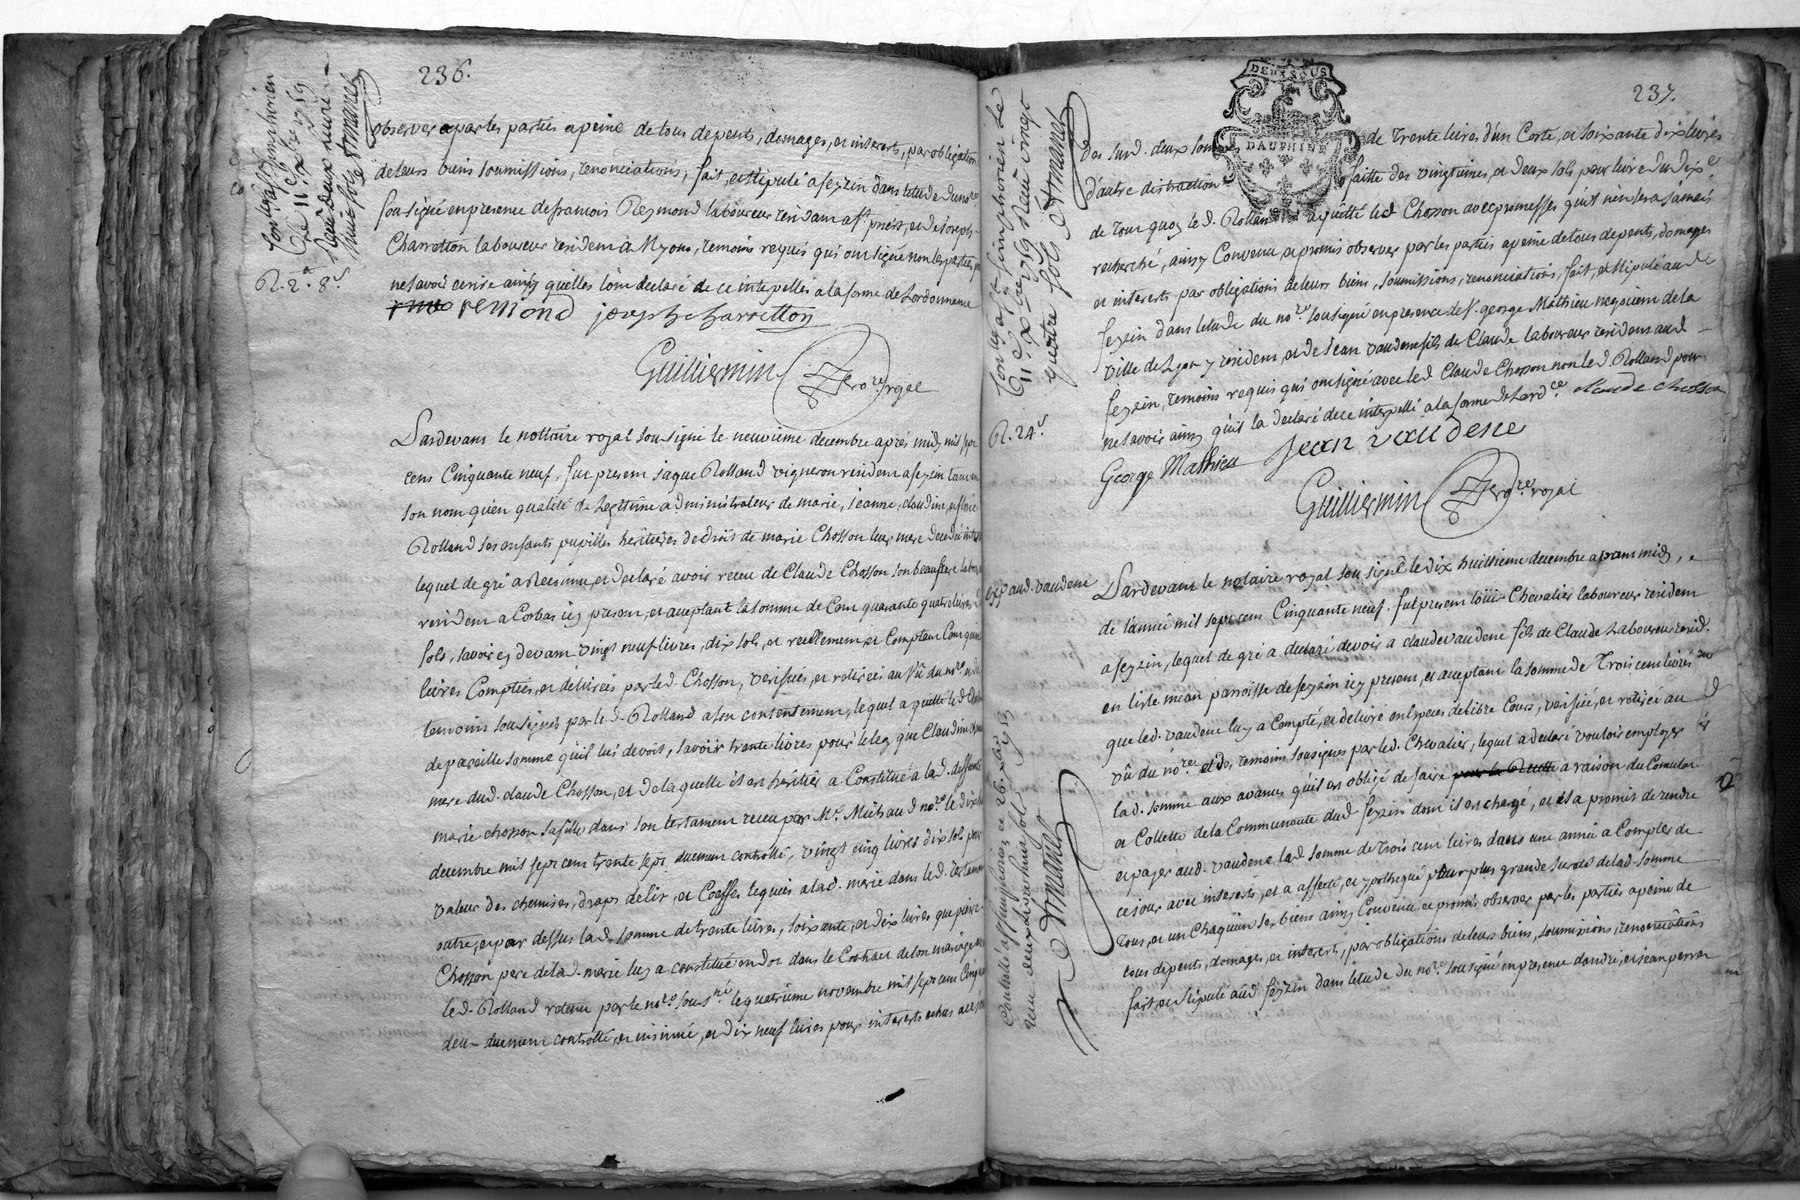 236.
Controllé a St simphorien
ce 11e xbre 1759
Reçu deux livres
huit sols Armanet
R. 2# 8s
observer par les parties a peine de tous depents, domages, et interests, par obligation
de leurs biens soumissions, renonciations, fait, et stipulé a feyzin dans letude du no.re
sousigné en presence de francois Reymond laboureur residant a st priest, et de Joseph
Charretton laboureur resident à Myons, temoins requis qui ont signé non les parties pour
ne scavoir ecrire ainsy quelles lont declaré de ce interpellés a la forme de Lordonnance
remond joseph charretton
Guilliermin no.re royal
Pardevant le nottaire royal sousigné le neuvieme decembre aprés midy mil sept
cens Cinquante neuf, fut present Jaque Rolland vigneron resident a feyzin tant en
son nom qu'en qualité de Legitime administrateur de marie, Jeanne, claudine, et
Rolland ses enfants pupilles heritiéres de droit de marie Chosson leur mere decedée
lequel de gré a Reconnu, et declaré avoir receu de Claude Chosson son beaufrere laboureur
resident a Corbas icy present, et acceptant la somme de Cent quarante quatre livres
sols, savoir cy devant vingt neuf livres, dix sols, et reellement et Comptant Cent quinze
livres Comptées, et delivrées par led. Chosson, verifiées, et retirées au vû du no.re et
temoins sousignés par led. Rolland a son contentement, lequel a quitté led. Chosson
de pareille somme qu'il lui devoit, savoir trente livres pour le leg que Claudine
mere dud. claude Chosson, et de laquelle il est heritier a Constitué a lad. deffunte
marie chosson sa fille dans son testament receu par Me. Michaud no.re le dix
decembre mil sept cent trente sept duement controllé, vingt cinq livres dix sols pour
valeur des chemises, draps de lit, et Coeffes leguées a lad. marie dans led. testament
outre, et par dessus lad. somme de trente livres, soixante, et dix livres que pierre
Chosson pere de lad. marie luy a constitué en dot dans le Contract de son mariage avec
led. Rolland retenu par le no.re sousné le quatriéme novembre mil sept cent Cinquante
deux duement controllé, et insinué, et dix neuf livres pour interests echus
237.
DEUX SOUS
DAUPHINE
Controllé a st simphorien ce
11e xbre 1759 Reçu vingt
quatre sols Armanet
R. 24s
des susd. deux sommes de trente livres d'un Coté, et soixante dix livres
d'autre distraction faitte des vingtiemes, et deux sols pour livre du dixe
de tout quoy led. Rolland a quitté led. Chosson avec promesses qu'il n'en sera jamais
recherché, ainsy Convenu et promis observer par les parties a peine de tous depents, domages
et interests par obligations de leurs biens, soumissions, renonciations, fait, et stipulé aud.
feyzin dans letude du no.re sousigné en presence de Sr. george Mathieu negociant de la
ville de Lyon y resident, et de Jean vaudene fils de Claude laboureur resident aud.
feyzin, temoins requis qui ont signé avec led. Claude Chosson non led. Rolland pour
ne scavoir ainsy qu'il la declaré de ce interpellé a la forme de Lord.ce claude chosson
George Mathieu Jean vaudene
Guilliermin no.re royal
exp aud. vaudene
Controllé a st simphorien ce 26. xbre 1759
reçu deux livres huit sols
Armanet
Pardevant le notaire royal sousigné le dix huittieme decembre avant midy,
de lannée mil sept cent Cinquante neuf. fut present louis Chevalier laboureur resident
a feyzin, lequel de gré a declaré devoir a claude vaudene fils de Claude Laboureur resid.
en lisle mean parroisse de feyzin icy present, et acceptant la somme de Trois cent livres
que led. vaudene luy a Compté, et delivré en Especes de libre Cours, verifiée, et retirée au
vû du no.re et des temoins sousignés par led. Chevalier, lequel a declaré vouloir employer
lad. somme aux avances qu'il est obligé de faire a raison du Consulat
et Collette de la Communauté dud. feyzin dont il est chargé, et il a promis de rendre
et payer aud. vaudene lad. somme de trois cent livres dans une année a Compter de
ce jour avec interests, et a affecté, et ypothequé pour plus grande sureté de lad. somme
tous, et un Chaquun ses biens ainsy Convenu et promis observer par les parties a peine de
tous depents, domages, et interests, par obligations de leurs biens, soumissions, renonciations
fait et stipulé aud. feyzin dans letude du no.re sousigné en presence dandré, et jean perrar